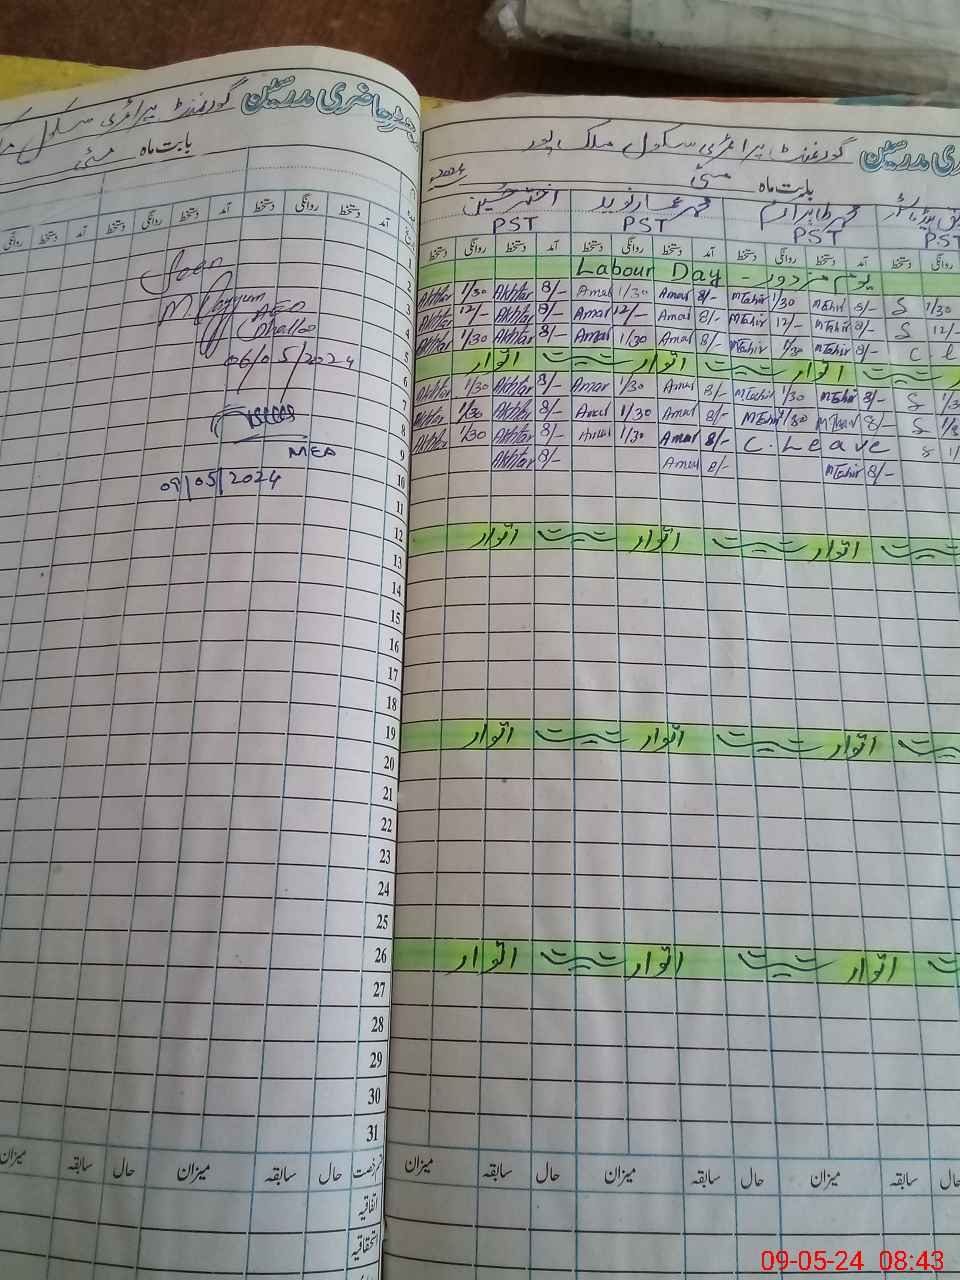 رجسٹر حاضری مدرسین گورنمنٹ پرائمری سکول
بابت ماہ مئی
آمد دستخط روانگی دستخط آمد دستخط روانگی دستخط آمد دستخط روانگی
Seen
M Qayyum
AEO
06/05/2024
MEA
09/05/2024
1
2
3
4
5
6
7
8
9
10
11
12
13
14
15
16
17
18
19
20
21
22
23
24
25
26
27
28
29
30
31
قسم رخصت حال سابقہ میزان حال سابقہ میزان
اتفاقیہ
استحقاقیہ
ری مدرسین گورنمنٹ پرائمری سکول ملک پور
بابت ماہ مئی 2024
محمد طاہر محمد عمار نوید اختر حسین
PST PST PST PST
روانگی دستخط آمد دستخط روانگی دستخط آمد دستخط روانگی دستخط
Labour Day - یوم مزدور
Akhtar 1/30 Akhtar 8/- Amar 1/30 Amar 8/- MTahir 1/30 MTahir 8/- S 1/30
Akhtar 12/- Akhtar 8/- Amar 12/- Amar 8/- MTahir 12/- MTahir 8/- S 12/-
Akhtar 1/30 Akhtar 8/- Amar 1/30 Amar 8/- MTahir 1/30 MTahir 8/- C. L
اتوار اتوار اتوار
Akhtar 1/30 Akhtar 8/- Amar 1/30 Amar 8/- MTahir 1/30 MTahir 8/- S 1/3
Akhtar 1/30 Akhtar 8/- Amar 1/30 Amar 8/- MTahir 1/30 MTahir 8/- S
Akhtar 1/30 Akhtar 8/- Amar 1/30 Amar 8/- C. Leave
Akhtar 8/- Amar 8/- MTahir 8/-
اتوار اتوار اتوار
اتوار اتوار اتوار
اتوار اتوار اتوار
حال سابقہ میزان حال سابقہ میزان حال سابقہ میزان
09-05-24 08:43